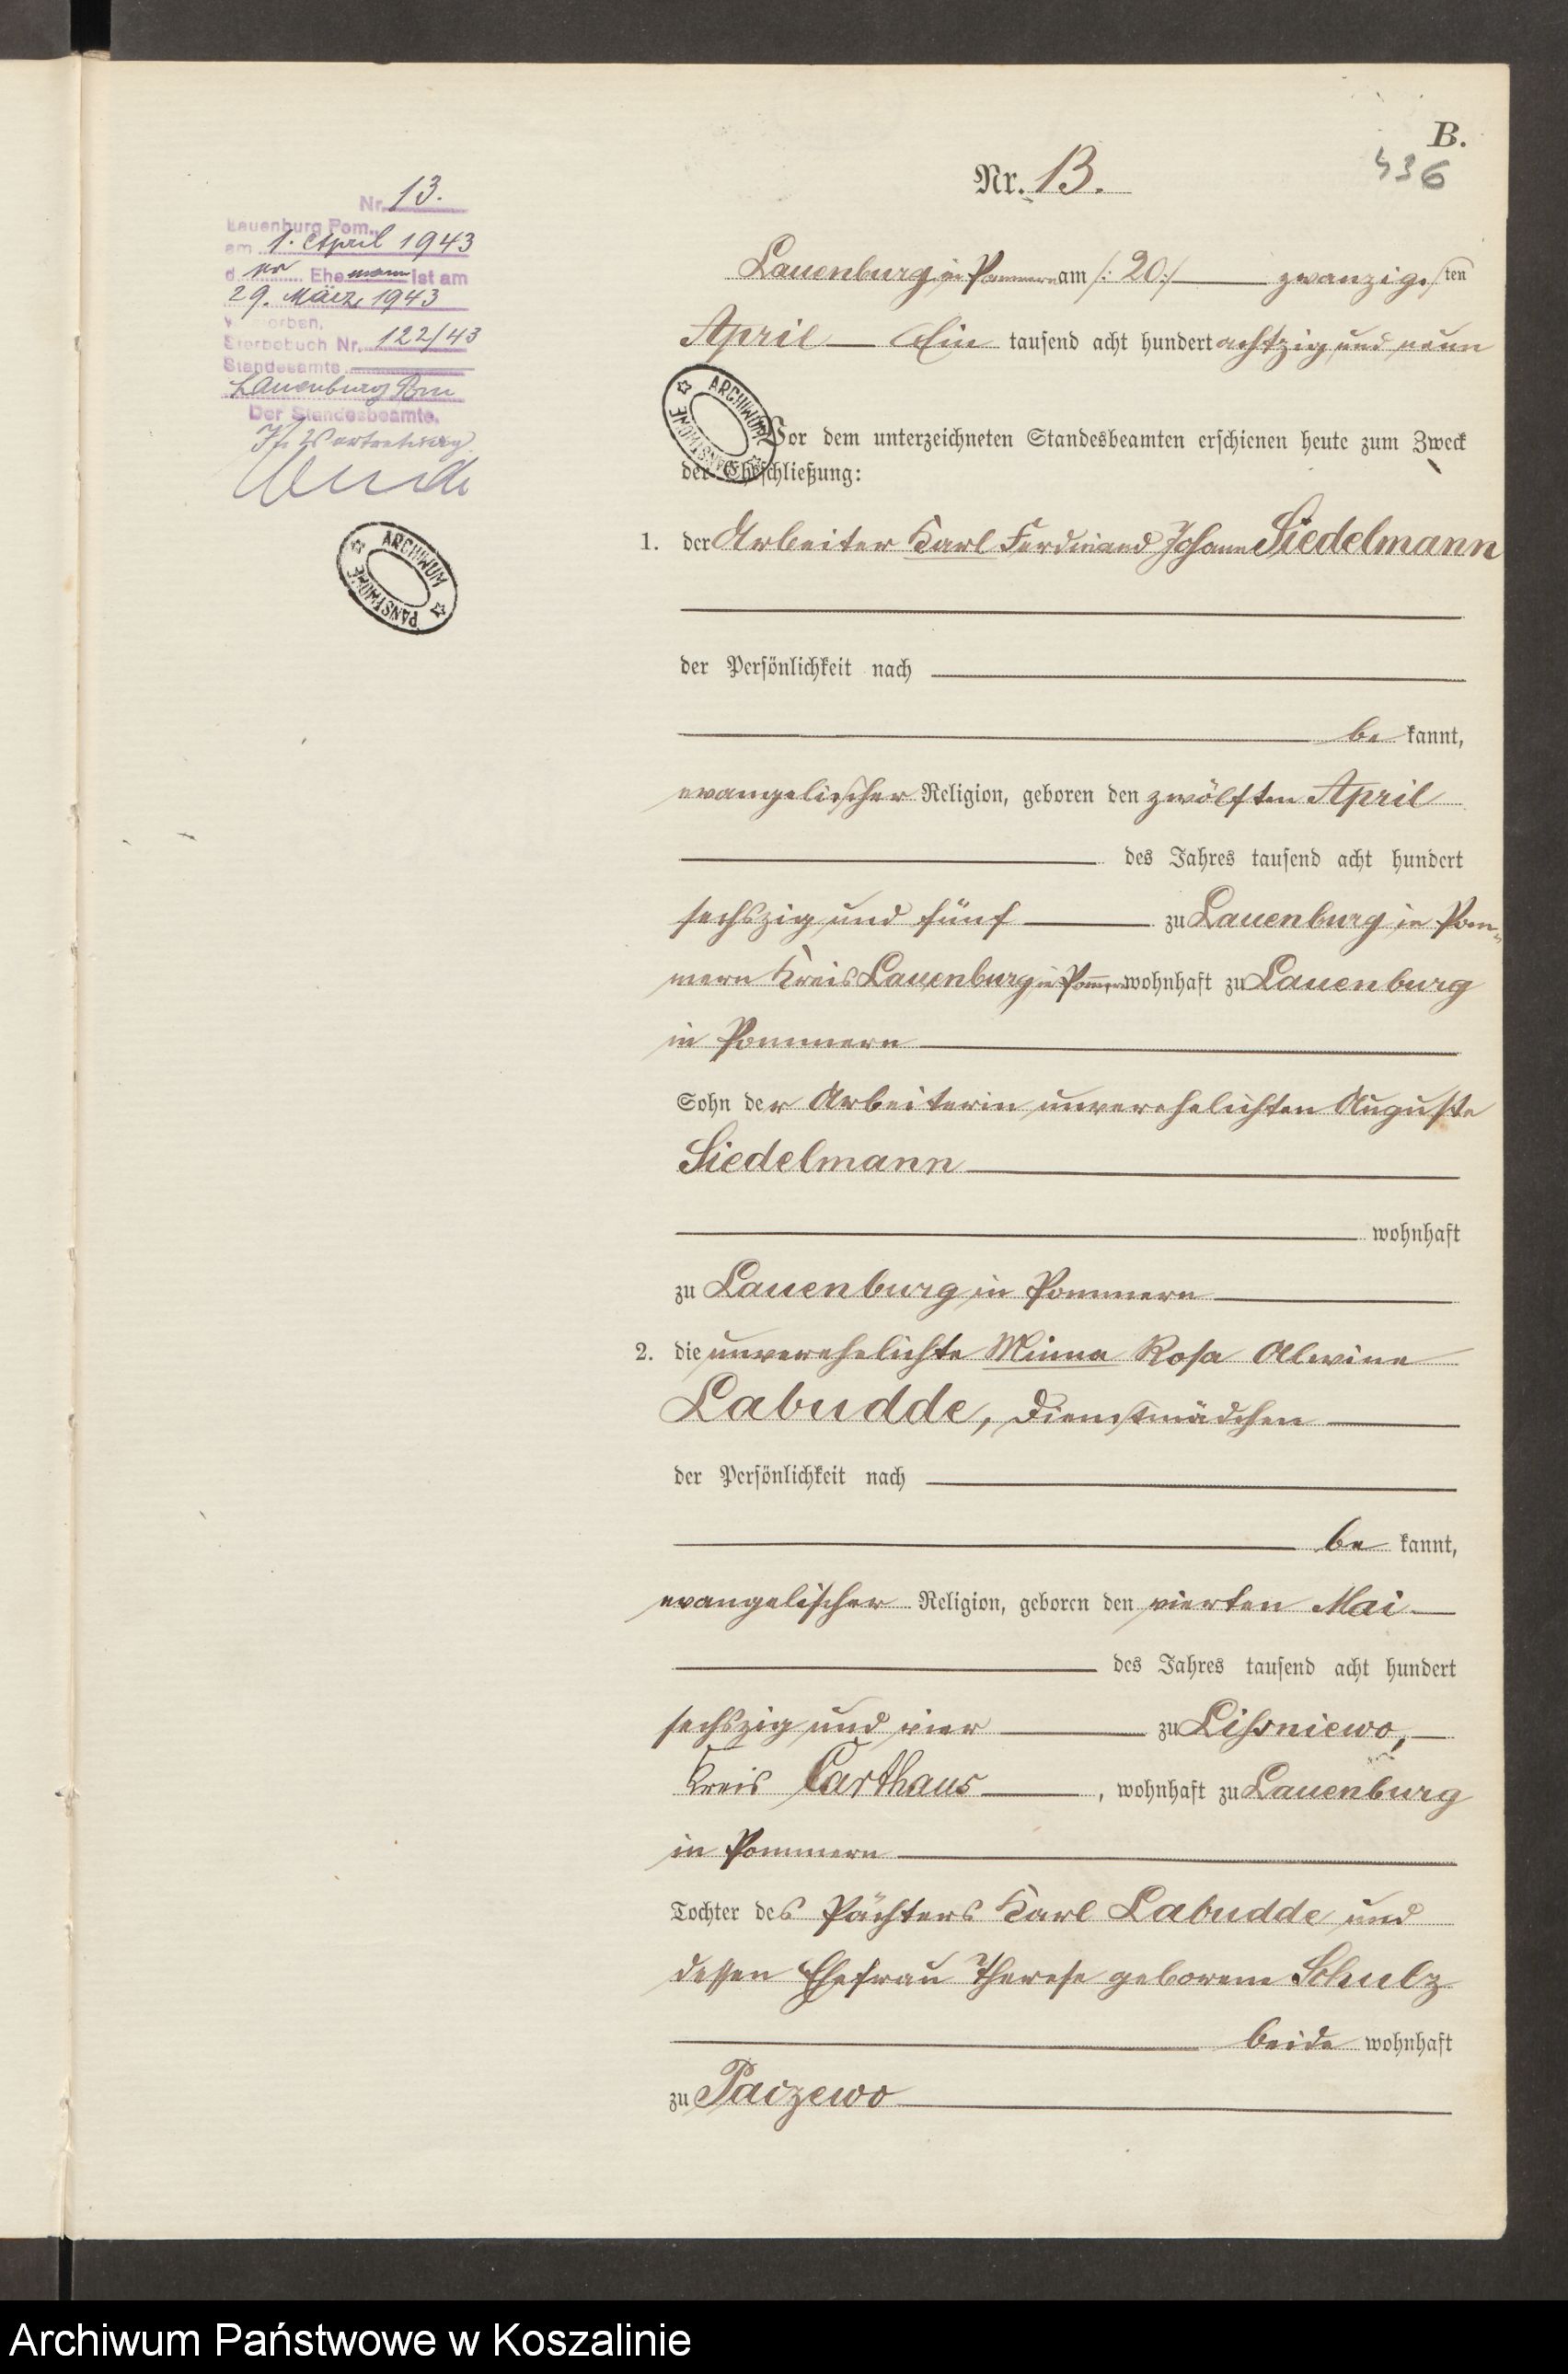 B.
436
Nr. 13.
Nr. 13.
Lauenburg Pom.,
am 1. April 1943
d er Ehemann ist am
29. März 1943
verstorben.
Sterbebuch Nr. 122/43
Standesamts
Lauenburg Pom
Der Standesbeamte.
In Vertretung
ARCHIWUM PAŃSTWOWE
Lauenburg in Pommern am /: 20 :/ zwanzigsten
April Ein tausend acht hundert achtzig und neun
ARCHIWUM PAŃSTWOWE
Vor dem unterzeichneten Standesbeamten erschienen heute zum Zweck
der Eheschließung:
1. der Arbeiter Karl Ferdinand Johann Siedelmann
der Persönlichkeit nach
be kannt,
evangelischer Religion, geboren den zwölften April
des Jahres tausend acht hundert
sechszig und fünf zu Lauenburg in Pom-
mern Kreis Lauenburg in Pommern wohnhaft zu Lauenburg
in Pommern
Sohn der Arbeiterin unverehelichten Auguste
Siedelmann
wohnhaft
zu Lauenburg in Pommern
2. die unverehelichte Minna Rosa Alwine
Labudde, Dienstmädchen
der Persönlichkeit nach
be kannt,
evangelischer Religion, geboren den vierten Mai
des Jahres tausend acht hundert
sechszig und vier zu Lissniewo,
Kreis Carthaus, wohnhaft zu Lauenburg
in Pommern
Tochter des Pächters Karl Labudde und
dessen Ehefrau Therese geborene Schulz
beide wohnhaft
zu Paczewo
Archiwum Państwowe w Koszalinie